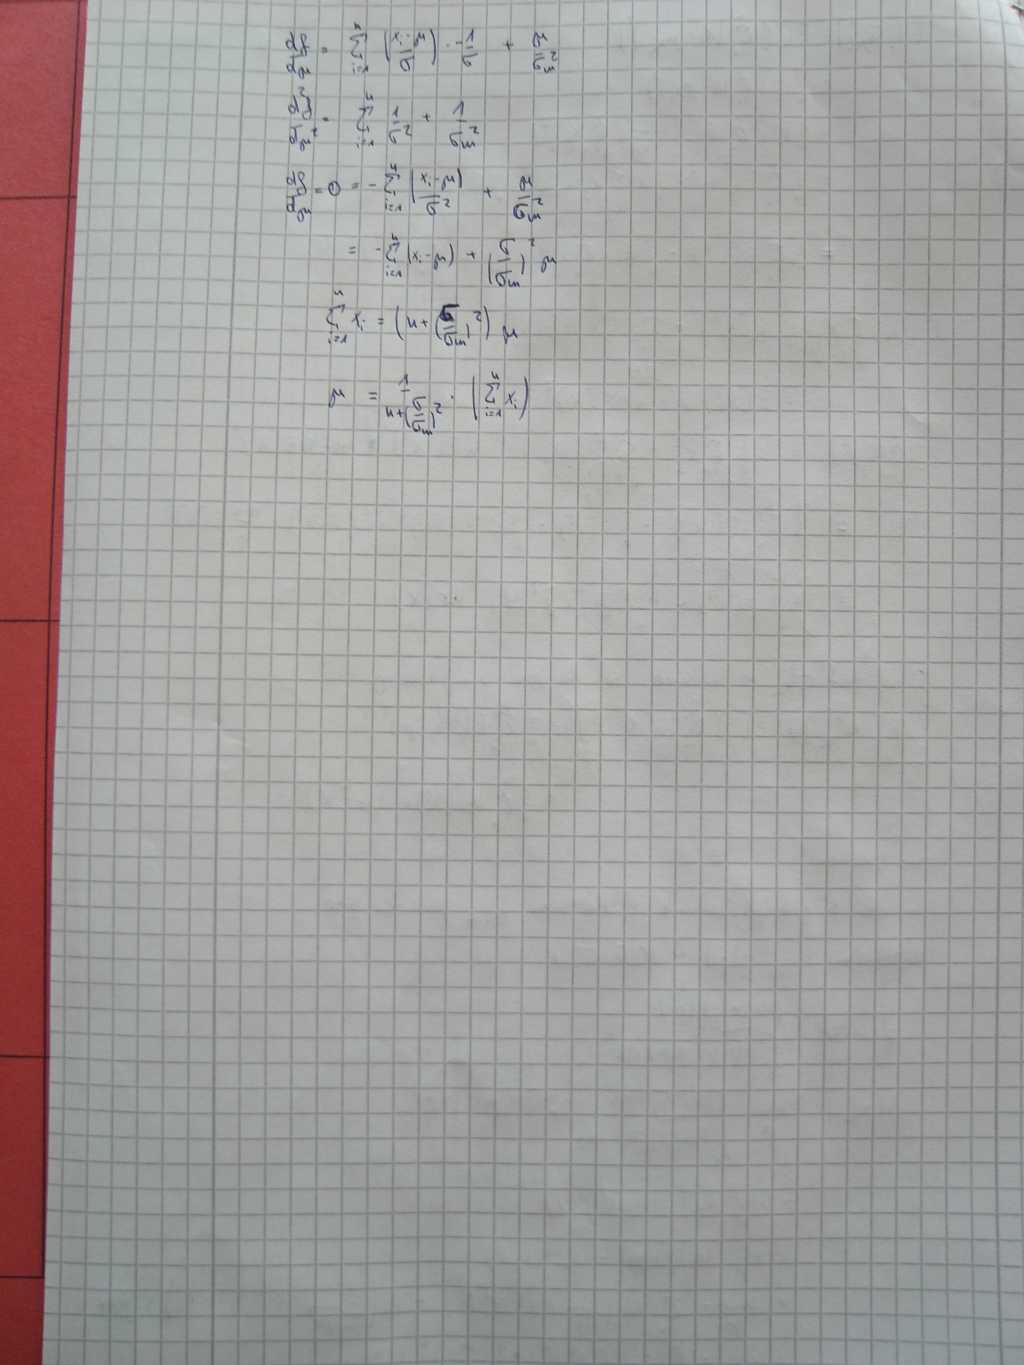 dg/dμ = Σ_{i=1}^{n} ((x_i - μ)/σ) · -1/σ + μ/σ_μ^2
d^2g/dμ^2 = Σ_{i=1}^{n} 1/σ^2 + 1/σ_μ^2
dg/dμ = 0 = - Σ_{i=1}^{n} (x_i - μ)/σ^2 + μ/σ_μ^2
= - Σ_{i=1}^{n} (x_i - μ) + (σ/σ_μ)^2 μ
Σ_{i=1}^{n} x_i = (n + (σ/σ_μ)^2) μ
μ = 1/(n + (σ/σ_μ)^2) · (Σ_{i=1}^{n} x_i)